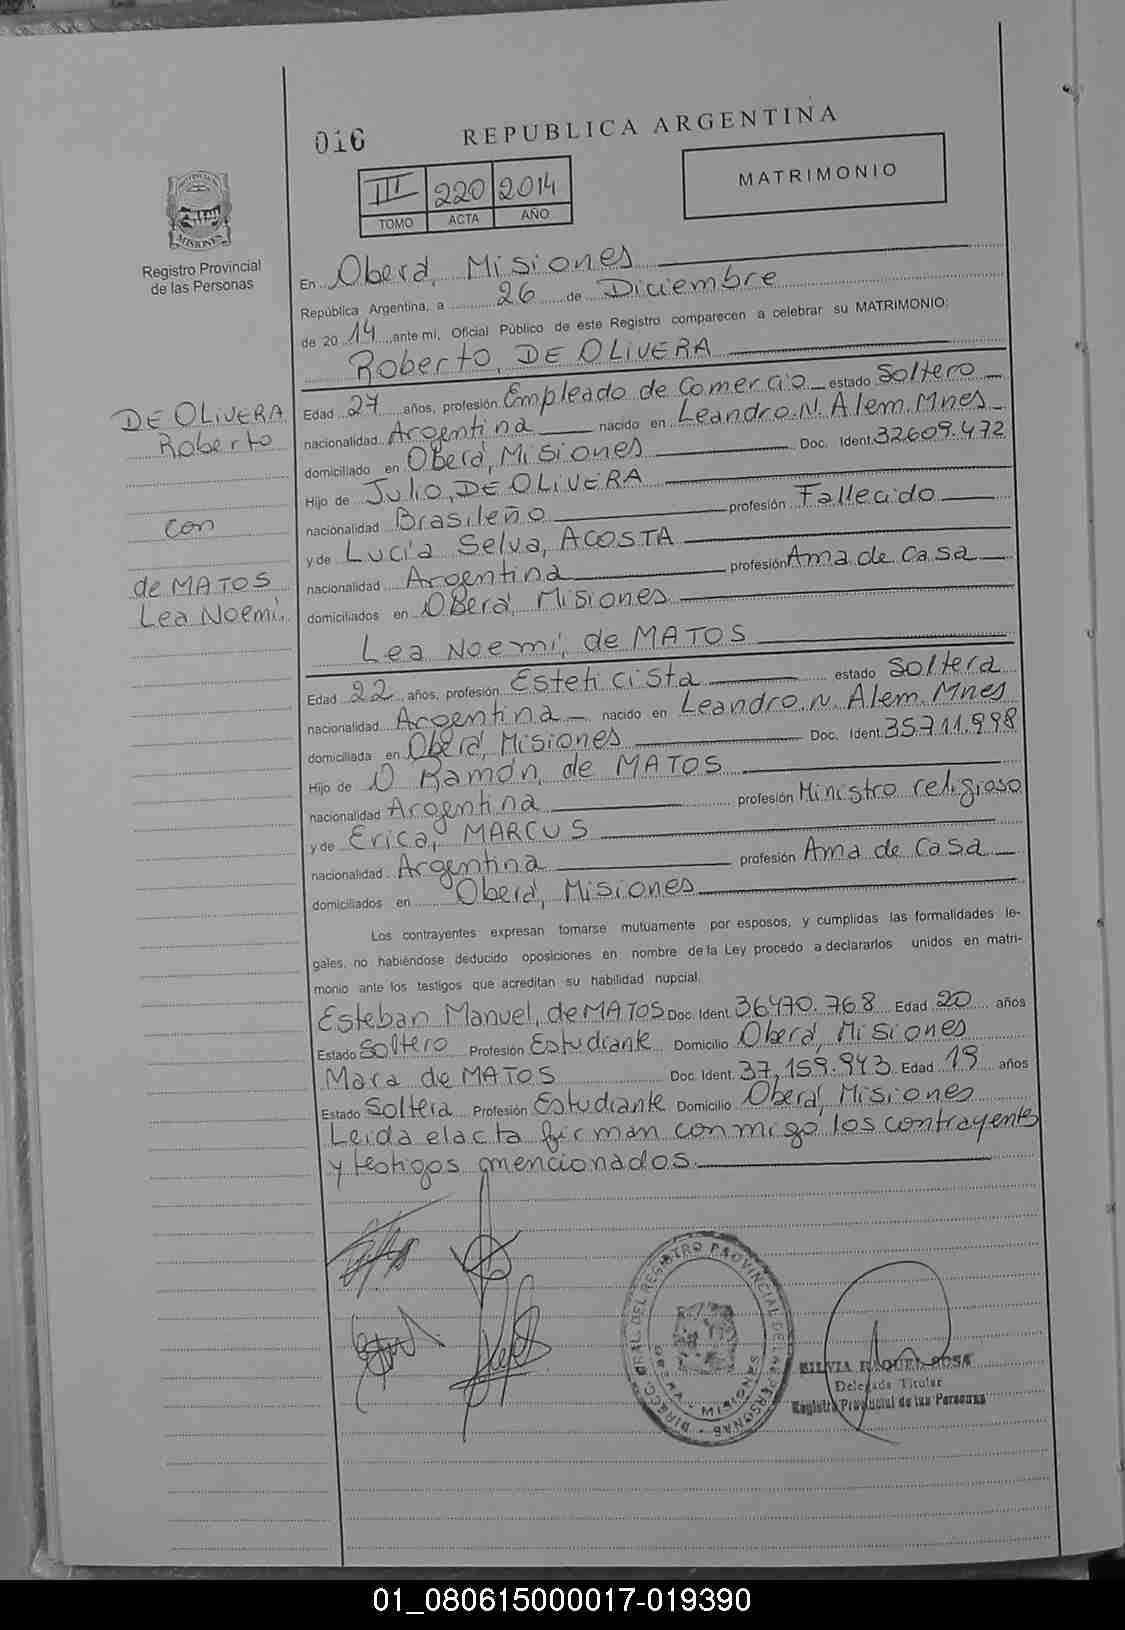 016 REPUBLICA ARGENTINA
III 220 2014
TOMO ACTA AÑO
MATRIMONIO
PROVINCIA DE
MISIONES
Registro Provincial
de las Personas
En Oberá, Misiones
República Argentina, a 26 de Diciembre
de 2014, ante mi, Oficial Público de este Registro comparecen a celebrar su MATRIMONIO:
Roberto, DE OLIVERA
DE OLIVERA
Roberto
con
de MATOS
Lea Noemí.
Edad 27 años, profesión Empleado de Comercio estado Soltero
nacionalidad Argentina nacido en Leandro.N.Alem.Mnes
domiciliado en Oberá, Misiones Doc. Ident. 32609.472
Hijo de Julio, DE OLIVERA
nacionalidad Brasileño profesión Fallecido
y de Lucía Selva, ACOSTA
nacionalidad Argentina profesión Ama de Casa
domiciliados en Oberá, Misiones
Lea Noemí, de MATOS
Edad 22 años, profesión Esteticista estado Soltera
nacionalidad Argentina nacido en Leandro.N.Alem.Mnes
domiciliada en Oberá, Misiones Doc. Ident. 35.711.998
Hijo de O Ramón, de MATOS
nacionalidad Argentina profesión Ministro religioso
y de Erica, MARCUS
nacionalidad Argentina profesión Ama de Casa
domiciliados en Oberá, Misiones
Los contrayentes expresan tomarse mutuamente por esposos, y cumplidas las formalidades le-
gales, no habiéndose deducido oposiciones en nombre de la Ley procedo a declararlos unidos en matri-
monio ante los testigos que acreditan su habilidad nupcial.
Esteban Manuel, de MATOS Doc. Ident. 36470.768 Edad 20 años
Estado Soltero Profesión Estudiante Domicilio Oberá, Misiones
Mara de MATOS Doc. Ident. 37.159.943 Edad 19 años
Estado Soltera Profesión Estudiante Domicilio Oberá, Misiones
Leida el acta firman conmigo los contrayentes
y testigos mencionados.
DIRECC. GRAL. DEL REGISTRO PROVINCIAL DE LAS PERSONAS
OBERA - MISIONES
SILVIA RAQUEL SOSA
Delegada Titular
Registro Provincial de las Personas
01_080615000017-019390